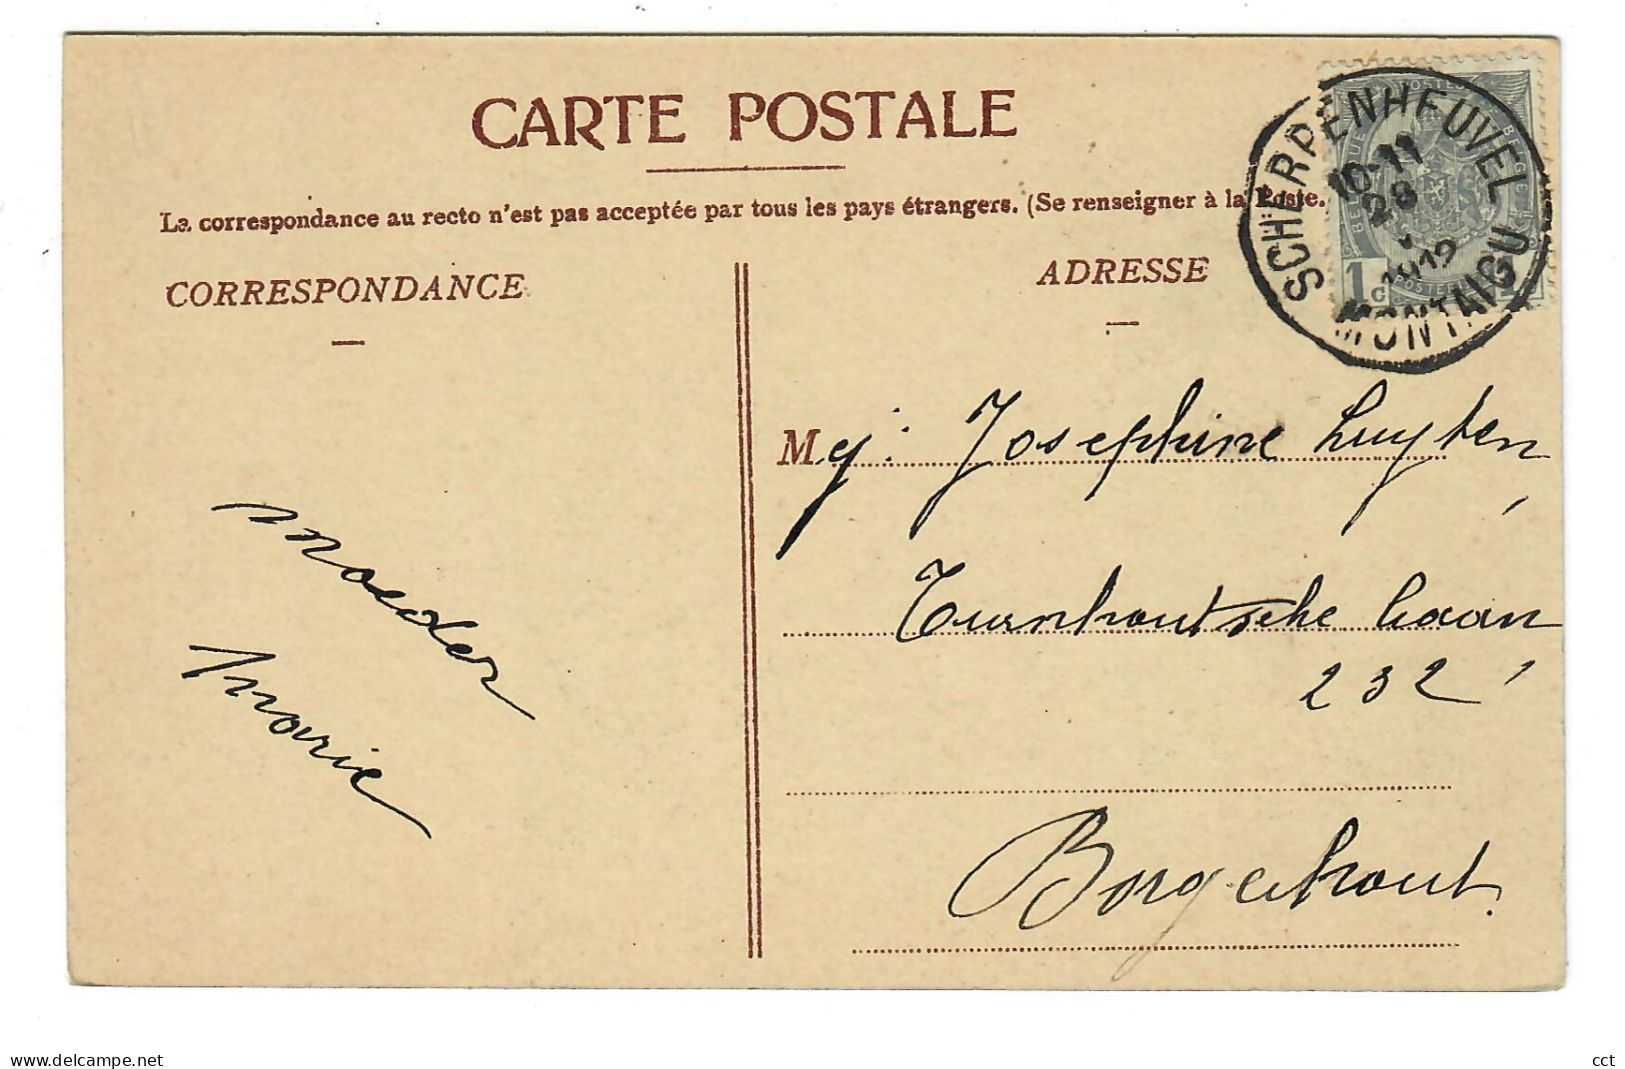 CARTE POSTALE
La correspondance au recto n'est pas acceptée par tous les pays étrangers. (Se renseigner à la Poste.
CORRESPONDANCE
ADRESSE
SCHERPENHEUVEL
10-11
28
1912
MONTAIGU
1c
Mej: Josephine Luyten,
Turnhoutsche baan
232,
Borgerhout.
moeder
Marie
www.delcampe.net
cct